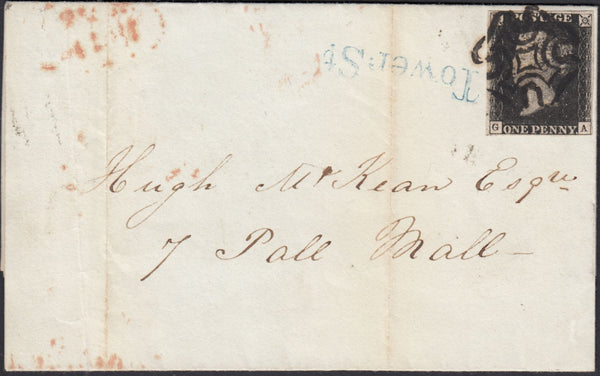 POSTAGE
Tower St
G A
ONE PENNY
Hugh McKean Esqre
7 Pall Mall –